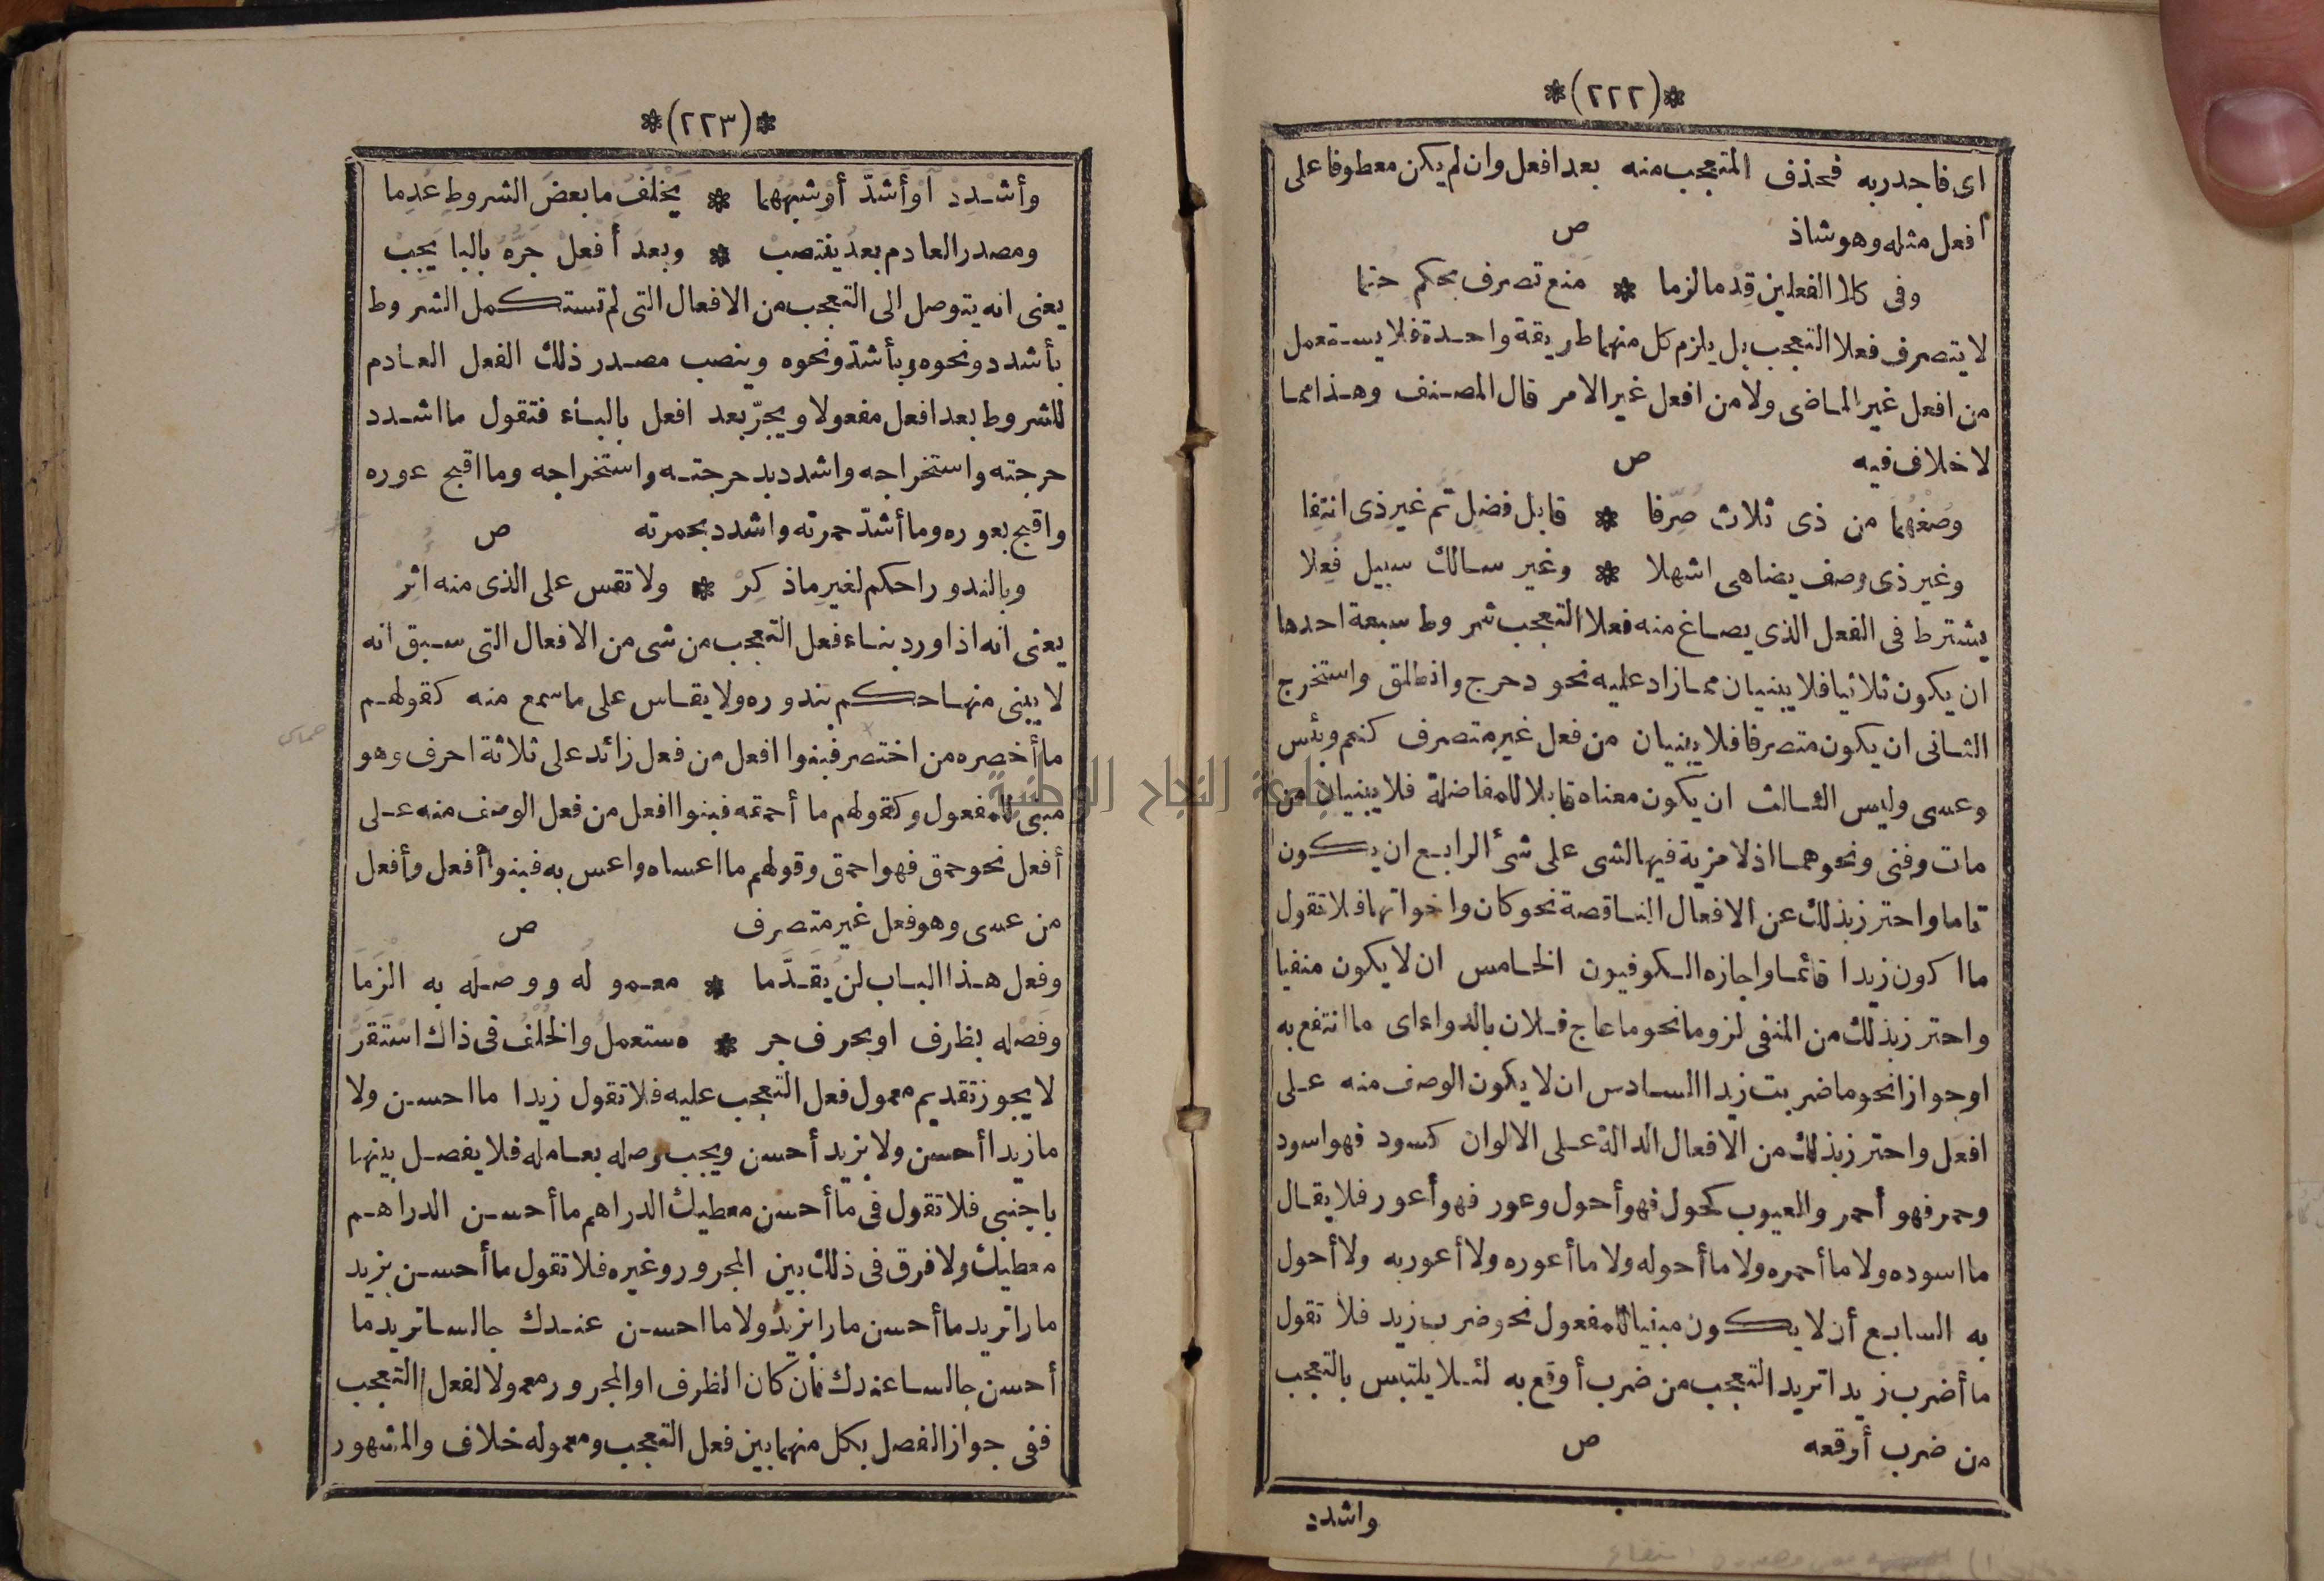 *(٢٢٢)*
اى فاجدر به فحذف المتعجب منه بعد افعل وان لم يكن معطوفا على
أفعل مثله وهو شاذ ص
وفى كلا الفعلين قِدْما لزما * مَنْع تصرف بحكم حُتِما
لا يتصرف فعلا التعجب بل يلزم كل منهما طريقة واحدة فلا يستعمل
من افعل غير الماضى ولا من افعل غير الامر قال المصنف وهذا مما
لا خلاف فيه ص
وصُغْهُما من ذى ثلاث صُرِّفا * قابل فضل تَمَّ غير ذى انْتِفا
وغير ذى وصف يضاهى اشهلا * وغير سالك سبيل فُعِلا
يشترط فى الفعل الذى يصاغ منه فعلا التعجب شروط سبعة احدها
ان يكون ثلاثيا فلا يبنيان مما زاد عليه نحو دحرج وانطلق واستخرج
الثانى ان يكون متصرفا فلا يبنيان من فعل غير متصرف كنعم وبئس
وعسى وليس الثالث ان يكون معناه قابلا للمفاضلة فلا يبنيان من
مات وفنى ونحوهما اذ لا مزية فيها لشى على شئ الرابع ان يكون
تاما واحترز بذلك عن الافعال الناقصة نحو كان واخواتها فلا تقول
ما اكون زيدا قائما واجازه الكوفيون الخامس ان لا يكون منفيا
واحترز بذلك من المنفى لزوما نحو ما عاج فلان بالدواء اى ما انتفع به
او جوازا نحو ما ضربت زيدا السادس ان لا يكون الوصف منه على
افعل واحترز بذلك من الافعال الدالة على الالوان كسود فهو اسود
وحمر فهو أحمر والعيوب كحول فهو أحول وعور فهو أعور فلا يقال
ما اسوده ولا ما أحمره ولا ما أحوله ولا ما أعوره ولا أعور به ولا أحول
به السابع أن لا يكون مبنيا للمفعول نحو ضرب زيد فلا تقول
ما أضرب زيدا تريد التعجب من ضرب أوقع به لئلا يلتبس بالتعجب
من ضرب أوقعه ص
واشدد
*(٢٢٣)*
وأشْدِدْ أَوْ أَشَدَّ أو شِبْهُهُما * يَخْلُفُ ما بعضَ الشروطِ عُدِما
ومصدر العادم بعدُ ينتصب * وبعدَ أَفعِلْ جَرُّهُ بالبا يَجِبْ
يعنى انه يتوصل الى التعجب من الافعال التى لم تستكمل الشروط
بأشدد ونحوه وبأشدّ ونحوه وينصب مصدر ذلك الفعل العادم
للشروط بعد افعل مفعولا ويجرّ بعد افعل بالباء فتقول ما اشد د
حرجته واستخراجه واشدد بدحرجته واستخراجه وما اقبح عوره
واقبح بعوره وما أشدّ حمرته واشدد بحمرته ص
وبالندور احكم لغير ما ذكِرْ * ولا تقس على الذى منه اثِرْ
يعنى انه اذا ورد بناء فعل التعجب من شى من الافعال التى سبق انه
لا يبنى منها حكم بندوره ولا يقاس على ما سمع منه كقولهم
ما أخصره من اختصر فبنوا افعل من فعل زائد على ثلاثة احرف وهو
مبنى للمفعول وكقولهم ما أحمقه فبنوا افعل من فعل الوصف منه على
أفعل نحو حمق فهو احمق وقولهم ما اعساه واعس به فبنوا أفعل وأفعل
من عسى وهو فعل غير متصرف ص
وفعل هذا الباب لن يُقَدَّما * معموله ووصْلَه به الْزَما
وفَصْله بظرف او بحرف جر * مُستعملٌ والخُلْفُ فى ذاك اسْتَقَرّْ
لا يجوز تقديم معمول فعل التعجب عليه فلا تقول زيدا ما احسن ولا
ما زيدا أحسن ولا بزيد أحسن ويجب وصله بعامله فلا يفصل بينهما
باجنبى فلا تقول فى ما أحسن معطيك الدراهم ما أحسن الدراهم
معطيك ولا فرق فى ذلك بين المجرور وغيره فلا تقول ما أحسن بزيد
مارا تريد ما أحسن مارا بزيد ولا ما احسن عندك جالسا تريد ما
أحسن جالسا عندك فأن كان الظرف او المجرور معمولا لفعل التعجب
ففى جواز الفصل بكل منهما بين فعل التعجب ومعموله خلاف والمشهور
جامعة النجاح الوطنية